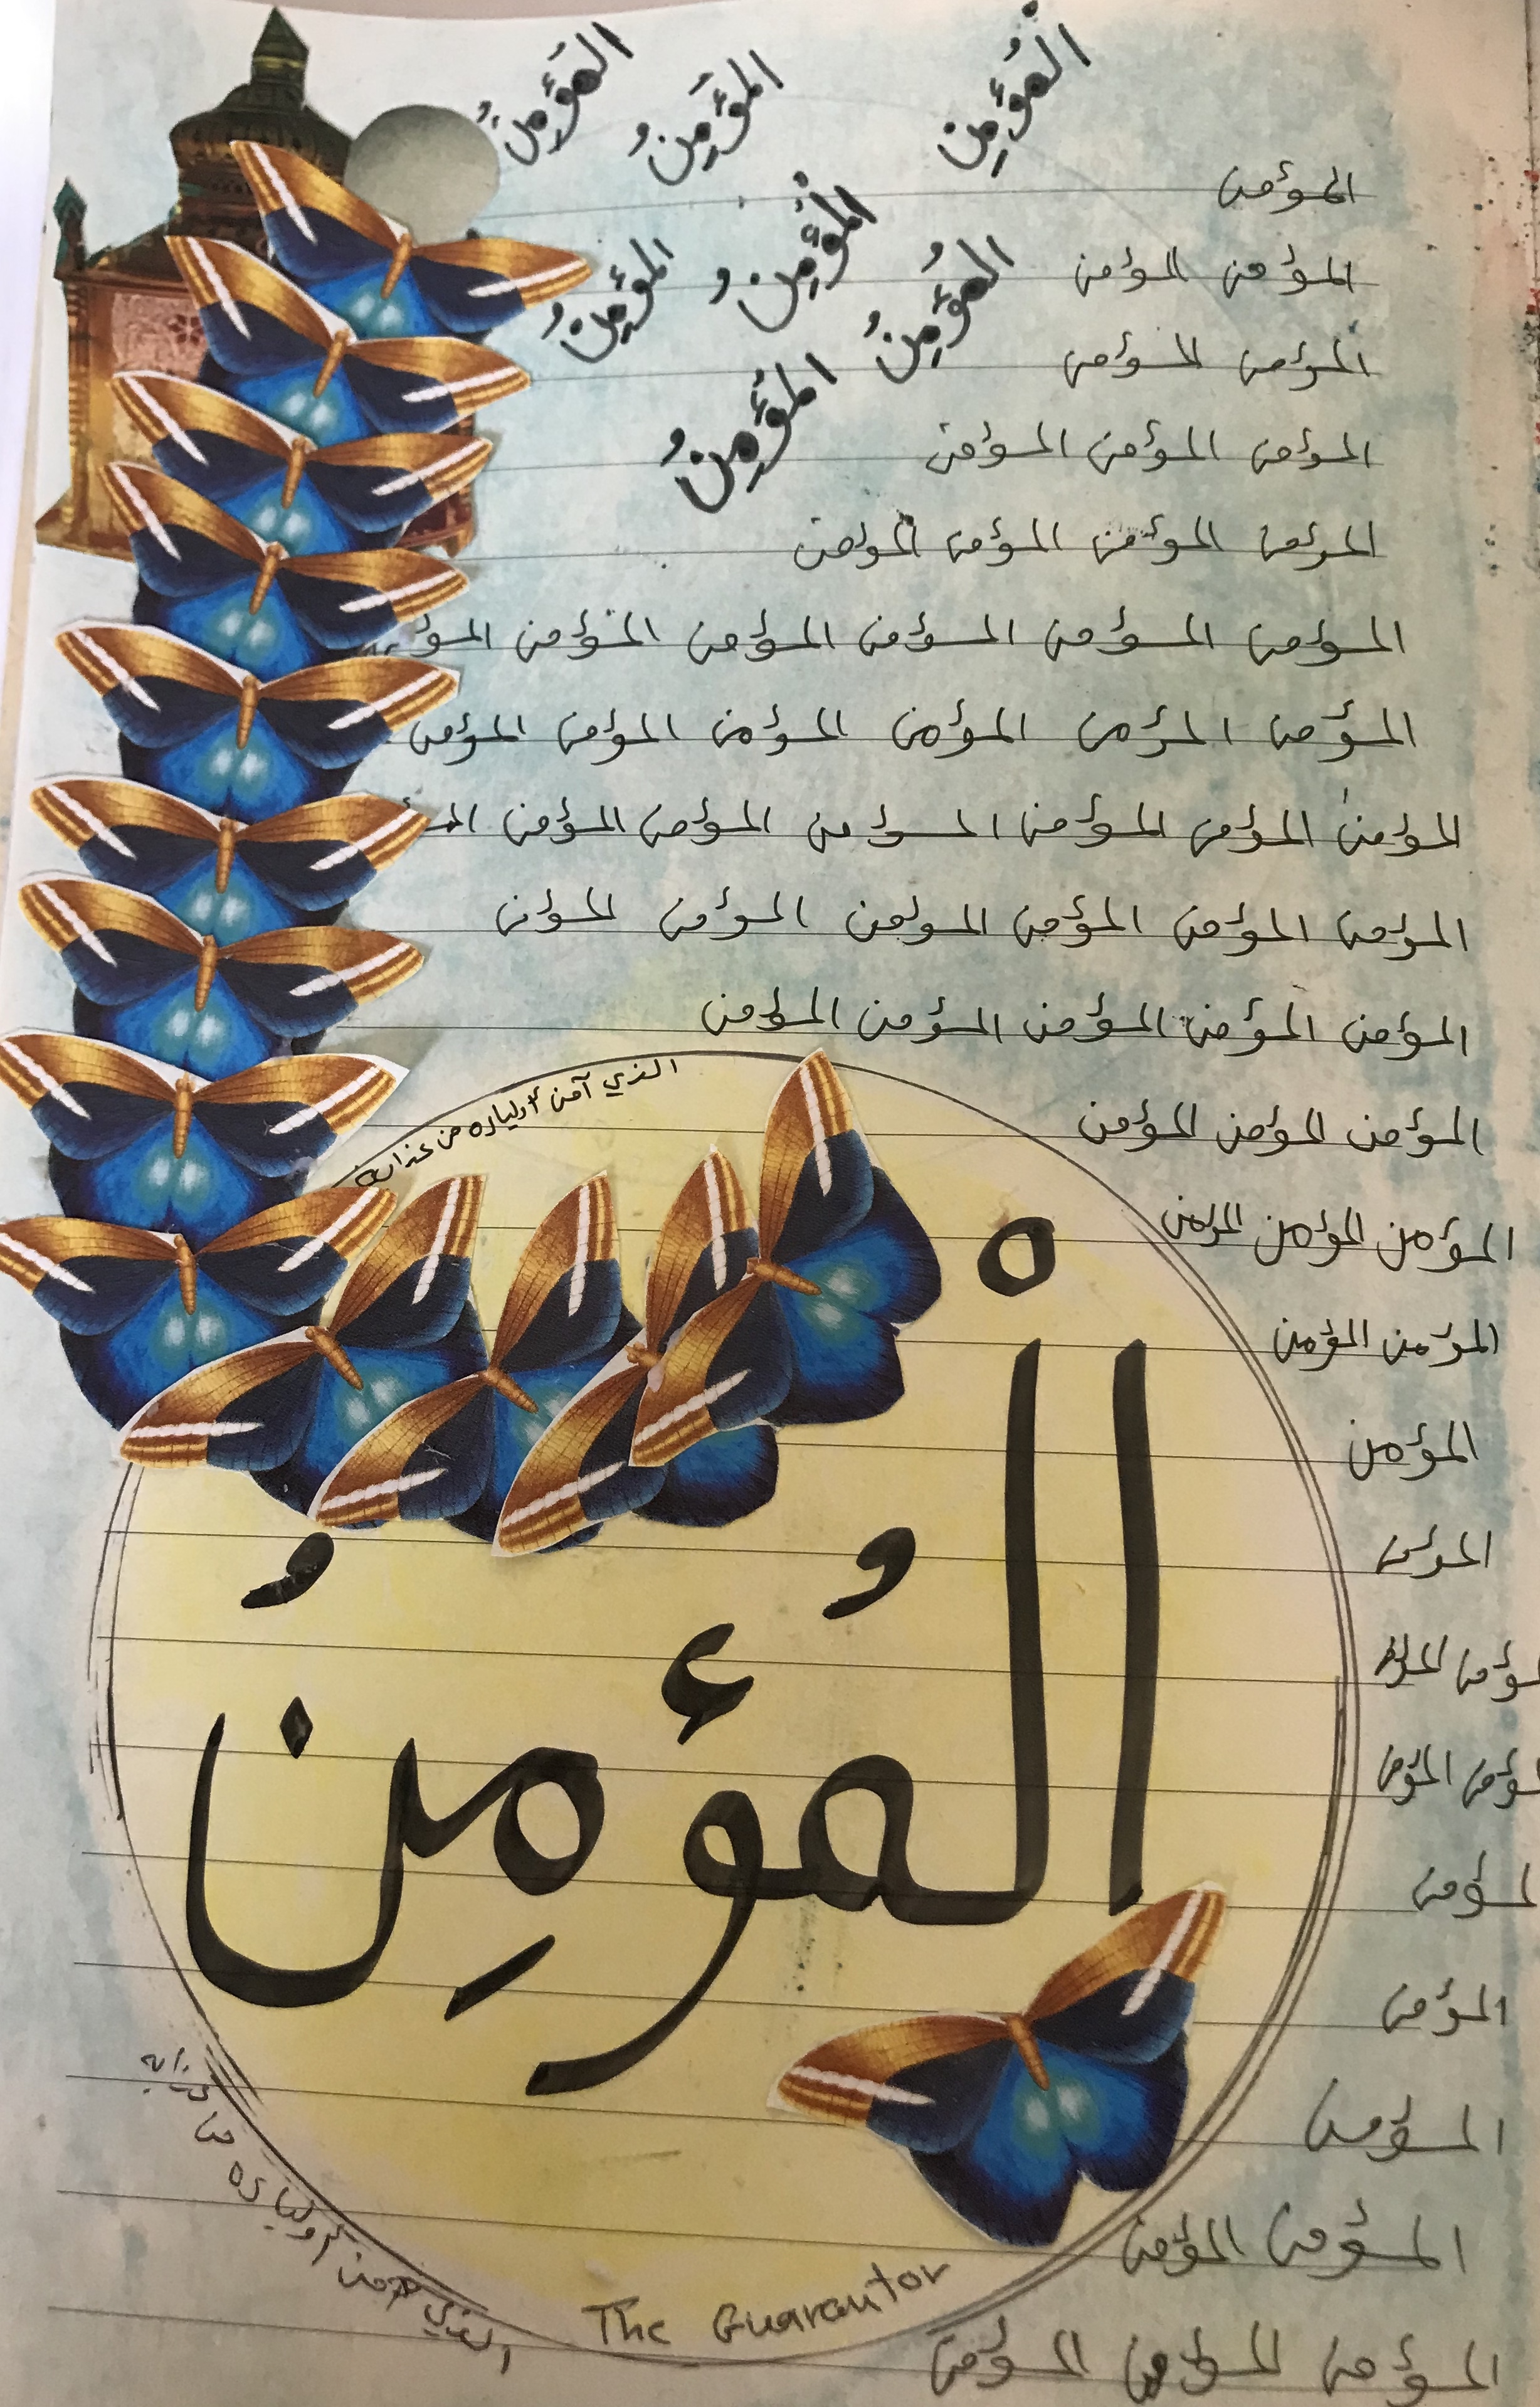 المَؤَمِنُ المؤَمِنُ الْمُؤمِن
المؤمن
المؤمن المؤمن
المؤمِنُ الْمُؤمِنُ المُؤمِنُ
المؤمن المؤمن
المؤمِنُ
المؤمن المؤمن المؤمن
المؤمن المؤمن المؤمن المؤمن
المؤمن المؤمن المؤمن المؤمن المؤمن المؤ
المؤمن المؤمن المؤمن المؤمن المؤمن المؤمن
المؤمن المؤمن المؤمن المؤمن المؤمن المؤمن المؤ
المؤمن المؤمن المؤمن المؤمن المؤمن المؤن
المؤمن المؤمن المؤمن المؤمن المؤمن
المؤمن المؤمن المؤمن
الذي آمن أولياءه من عذابه
المؤمن المؤمن المؤمن
المؤمن المؤمن
المؤمن
المؤمن
ـؤمن
ـؤمن المؤمن
لمؤمن
المؤمن
المؤمن
المؤمن المؤمن
المؤمن المؤمن المؤمن
الْمُؤمِنُ
الذي آمن أولياءه من عذابه
The Guarantor